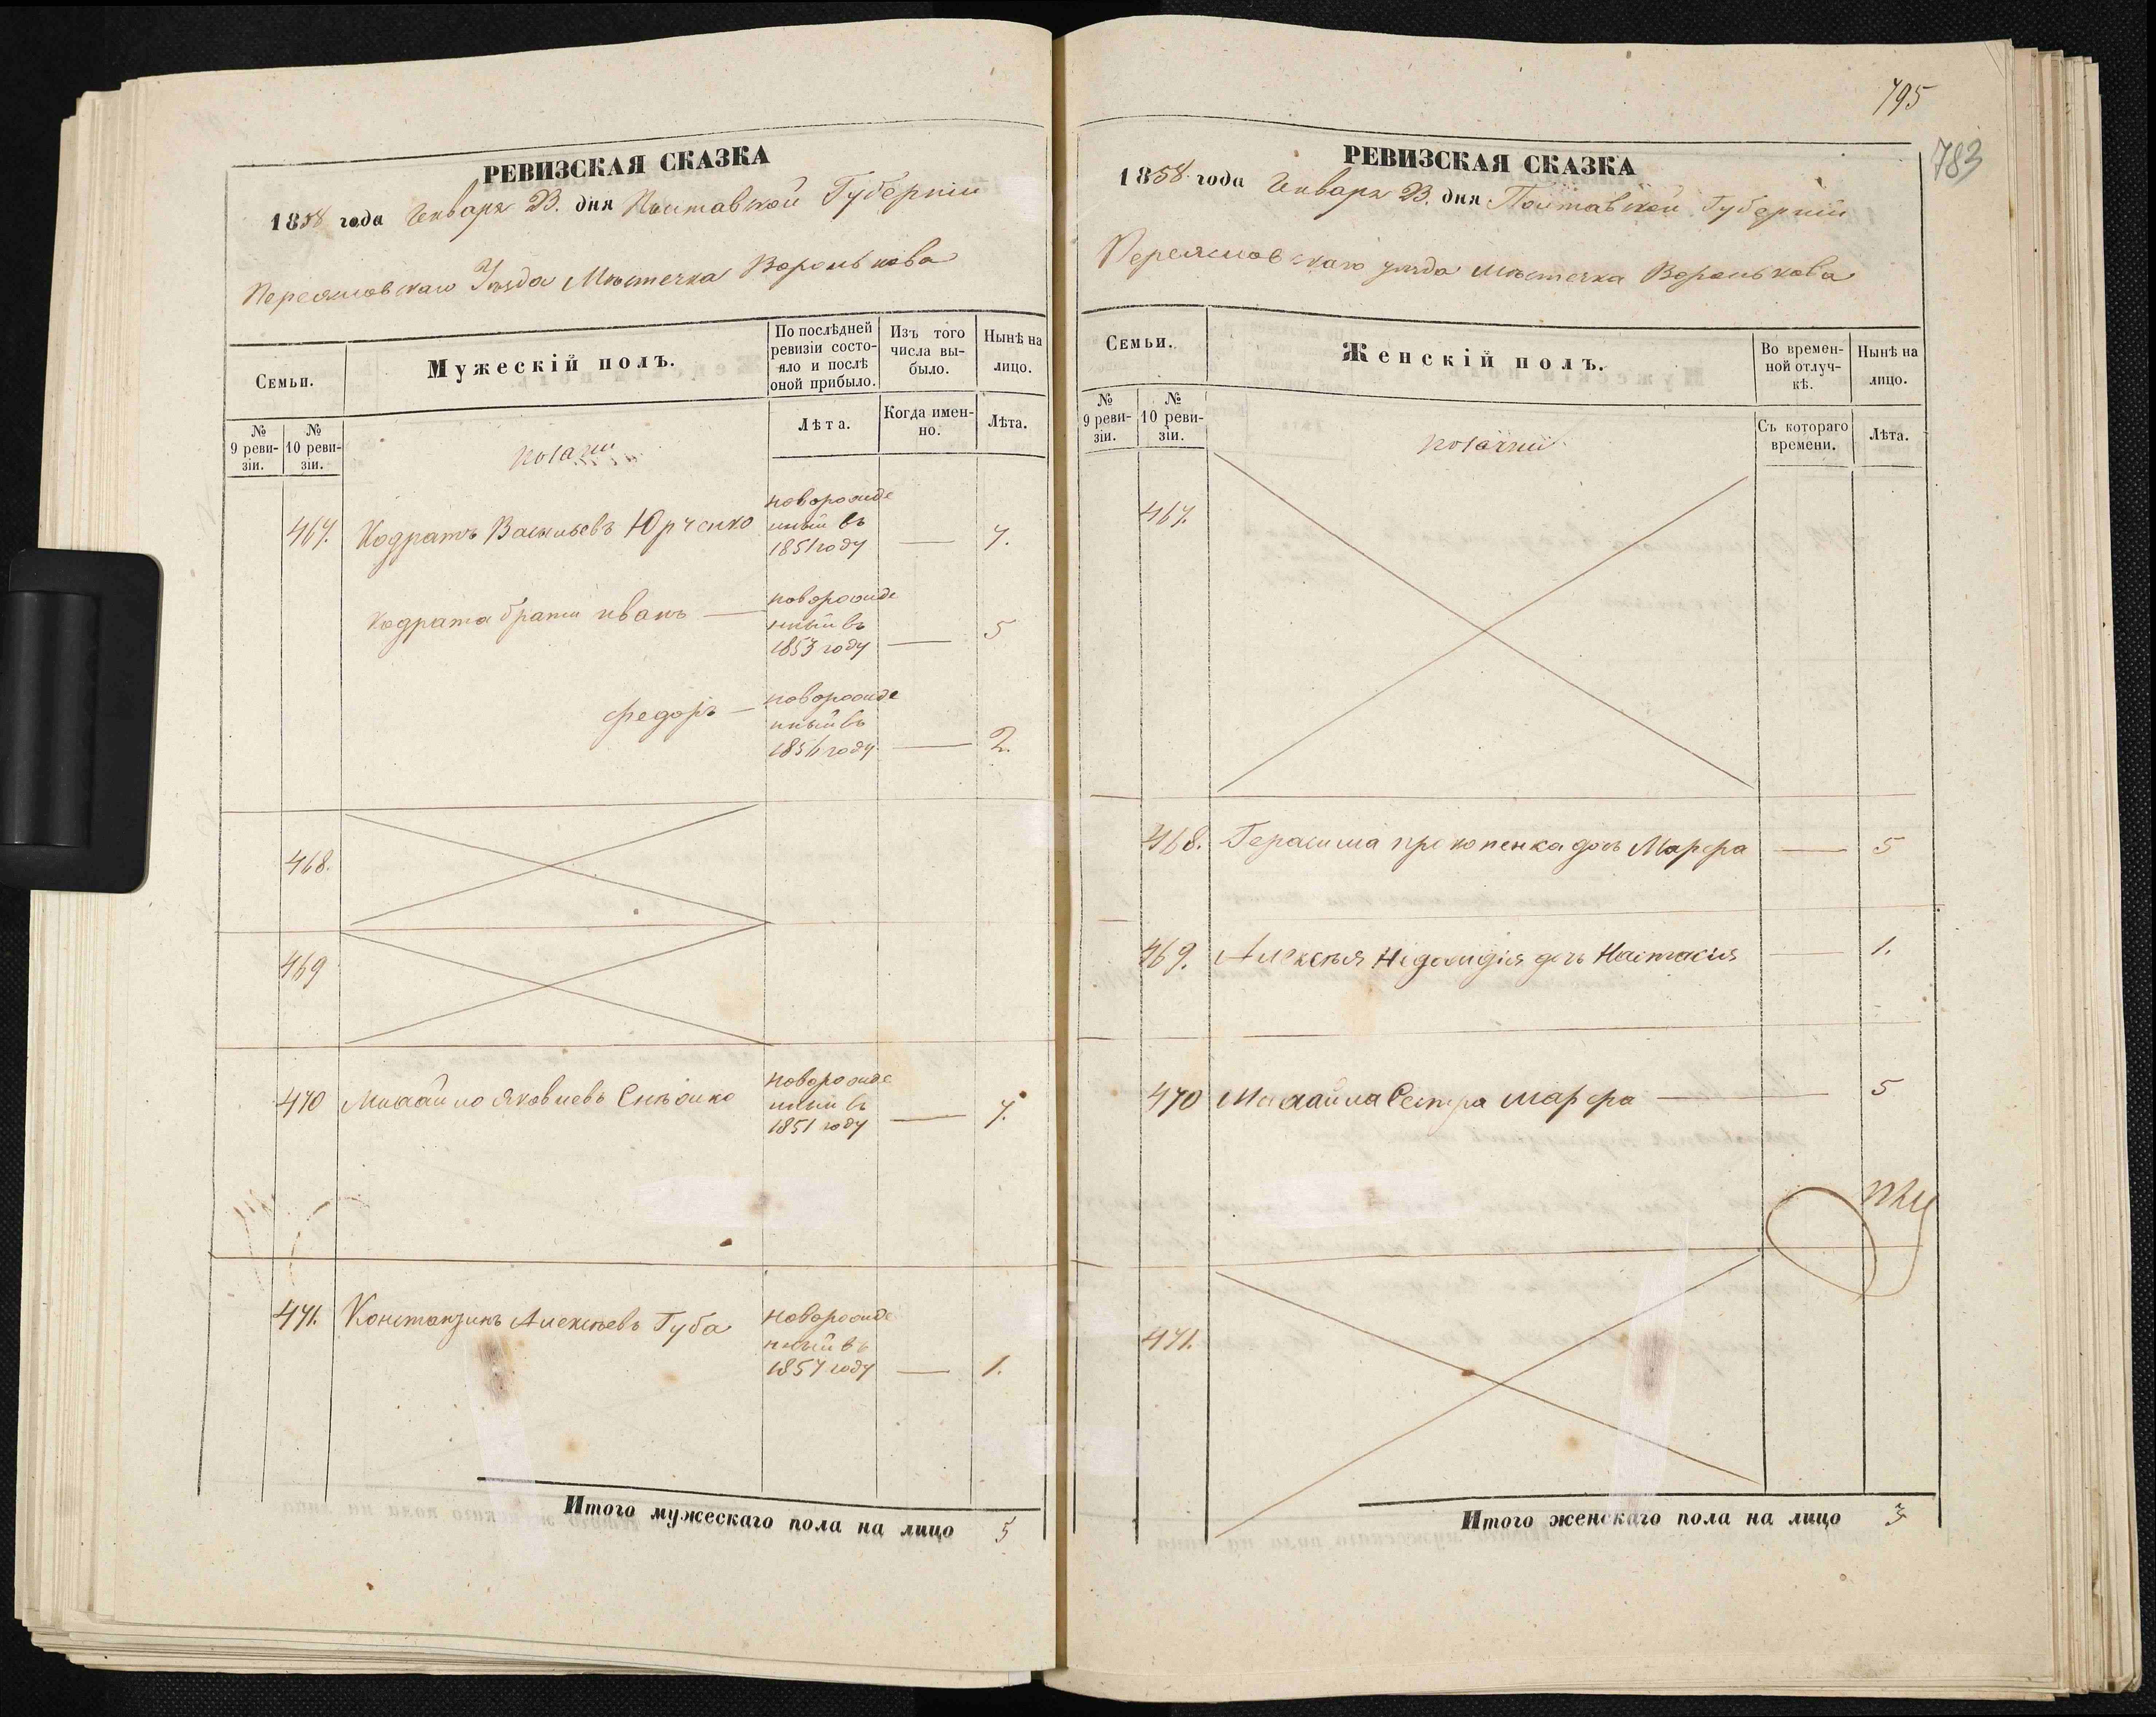 РЕВИЗСКАЯ СКАЗКА
1858 года Генваря 23. дня Полтавской Губерніи
Переяславскаго Уѣзда Мѣстечка Воронькова
Семьи.
Мужескій полъ.
По послѣдней ревизіи состояло и послѣ оной прибыло.
Изъ того числа выбыло.
Нынѣ на лицо.
№ 9 ревизіи.
№ 10 ревизіи.
Лѣта.
Когда именно.
Лѣта.
казачки
467. Кодратъ Васильевъ Юрченко
новорожде
нный въ
1851 году — 7.
Кодрата братья иванъ —
новорожде
нный въ
1853 году — 5
федоръ —
новорожде
нный въ
1856 году — 2.
468.
469
470 Михайло Яковлевъ
новорожде
нный въ
1851 году — 7.
471. Константинъ Алексѣевъ Губа
новорожде
нный въ
1857 году — 1.
Итого мужескаго пола на лицо 5
795
783
РЕВИЗСКАЯ СКАЗКА
1858 года Генваря 23. дня Полтавской Губерніи
Переяславскаго уѣзда мѣстечка Воронькова
Семьи.
Женскій полъ.
Во временной отлучкѣ.
Нынѣ на лицо.
№ 9 ревизіи.
№ 10 ревизіи.
Съ котораго времени.
Лѣта.
467.
468. Герасима прокопенка дочь Марфа — 5
469. Алексѣя дочь Настасія — 1.
470 Михайла Сестра марфа — 5
471.
Итого женскаго пола на лицо 3